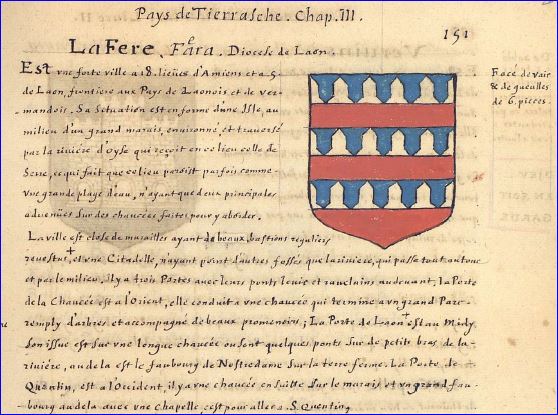 Pays de Tierrasche. Chap. III.
151
La Fere. Fara. Diocese de Laon.
Est vne forte ville a 18. lieües d'Amiens et a 5
de Laon, frontiere aux Pays de Laonois et de Ver-
mandois. Sa situation est en forme d'vne Isle, au
milieu d'vn grand marais, environné et traversé
par la riviére d'Oyse qui reçoit en ce lieu celle de
Sere, ce qui fait que ce lieu paroist par fois comme
vne grande plage d'eau, n'ayant que deux principales
advenües sur des chaucées faites pour y aborder.
La ville est close de murailles ayant de beaux bastions reguliers
revestus, et vne Citadelle, n'ayant point d'autres fossés que la riviere, qui passe tout autour
et par le milieu, il y a trois Portes avec leurs ponts levis et ravelains au devant. La Porte
de la Chaucée est a l'Orient, elle conduit a vne chaucée qui termine a vn grand Parc
remply d'arbres et accompagné de beaux promenoirs; La Porte de Laon est au Midy
son issue est sur vne longue chaucée ou sont quelques ponts sur de petits bras de la
riviére, au dela est le faubourg de Nostre dame sur la terre ferme. La Porte de
St. Quentin, est a l'Occident, il y a vne chaucée en suitte sur le marais et vn grand fau-
bourg au dela avec vne Chapelle, c'est pour aller a S. Quentin,
Facé de vair
& de gueulles
de 6. pieces.